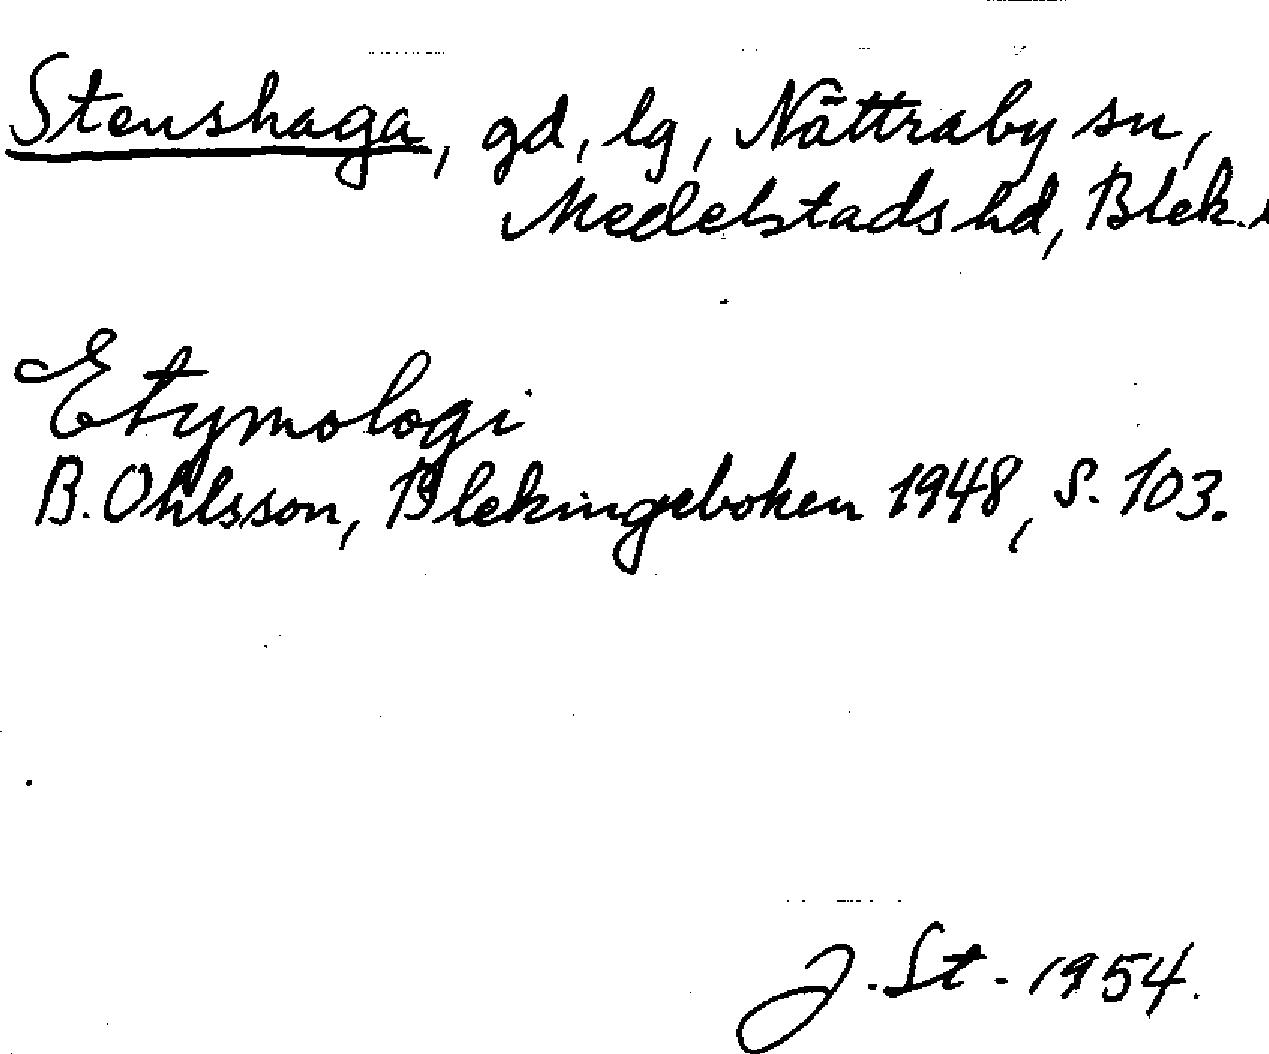 Stenshaga, gd, lg, Nättraby sn,
Medelstads hd, Blek.
Etymologi
B. Ohlsson, Blekingeboken 1948, s. 103.
J. St. 1954.